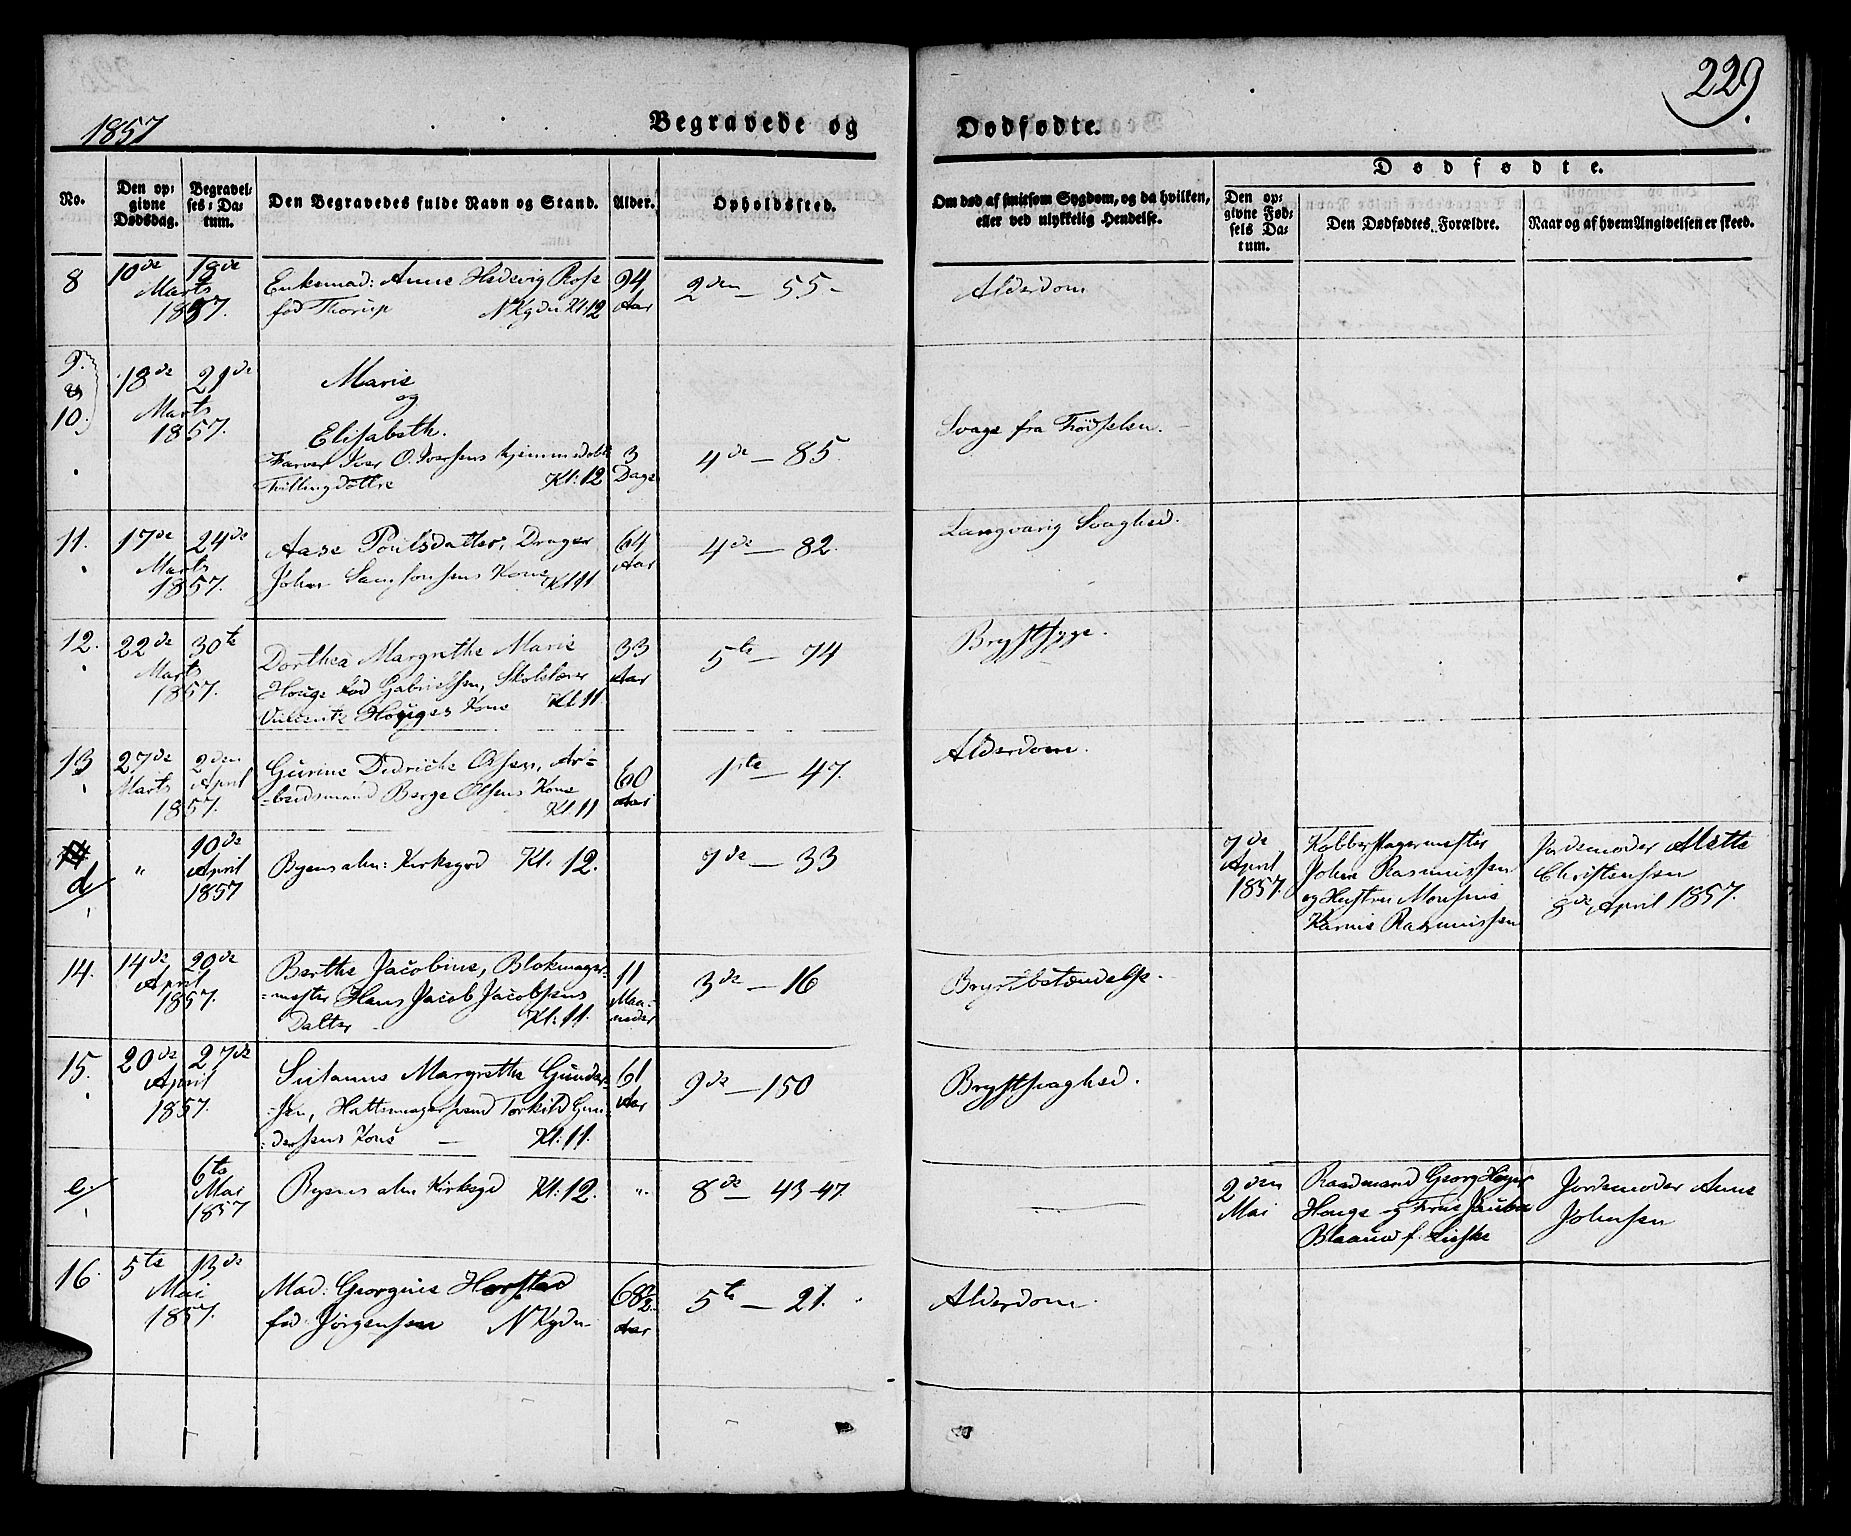 1857
Begravede og
Dødfødte.
229
No.
Den opgivne Dødsdag.
Begravelses-Datum.
Den Begravedes fulde Navn og Stand.
Alder.
Opholdssted.
Om død af smitsom Sygdom, og da hvilken, eller ved ulykkelig Hendelse.
Dødfødte.
Den opgivne Fødsels Datum.
Den Dødfødtes Forældre.
Naar og af hvem Angivelsen er skeed.
8 10de 18de Enkemad: Anne Hedevig Rose 94 2den — 55 — Alderdom
Marts 1857. fød Thorup NKgdn Kl: 12 Aar
9. & 10. 18de 21de Marie
Marts og
1857. Elisabeth. Svage fra Fødselen.
Farver Iver O. Iversens hjemmedøbte 3 4de — 85.
Tvillingdøttre Kl: 12 Dage
11. 17de 24de Aase Poulsdatter, Drager 64 4de — 82. Langvarig Svaghed.
Marts 1857. Johan Samsonsens Kone Kl 11 Aar
12. 22de 30te Dorthea Margrethe Marie 33 5te — 74 Brystsyge.
Marts Houge fød Gabrielsen, Skolelærer Aar
1857. Houges Kone Kl. 11.
13 27de 2den Gurine Didriche Olsen, Ar= 60 1ste — 47. Alderdom.
Marts April =beidsmand Berge Olsens Kone Aar
1857. Kl. 11
d/ " 10de April 1857 Byens alm: Kirkegrd Kl: 12. 7de — 33
7de April 1857.
Kobberslagermester
Johan Rasmussen
og Hustru Monsine
Karine Rasmussen
Jordemoder Mette
Christensen
8de April 1857.
14. 14de 20de Berthe Jacobine, Blokmager= 11 3de — 16 Brystbetændelse.
April =mester Hans Jacob Jacobsens Maa=
1857. Datter Kl: 11. neder
15. 20de 27de Susanne Margrethe Gunder= 61 9de — 150 Brystsvaghed.
April =sen, Hattemagersvend Torkild Gun= Aar
1857. =dersens Kone — Kl: 11.
e/ 6te Mai 1857 Byens alm Kirkegd Kl: 12. " 8de — 43-47.
2den Mai
Raadmand Georg Høyer
Houge og Frue
Blaauw f. Lieske
Jordemoder Anne
Johnsen
16. 5te 13de Mad: Georgine Harstad 68½ 5te — 21. Alderdom.
Mai
1857. fød Jörgensen NKgdn Aar